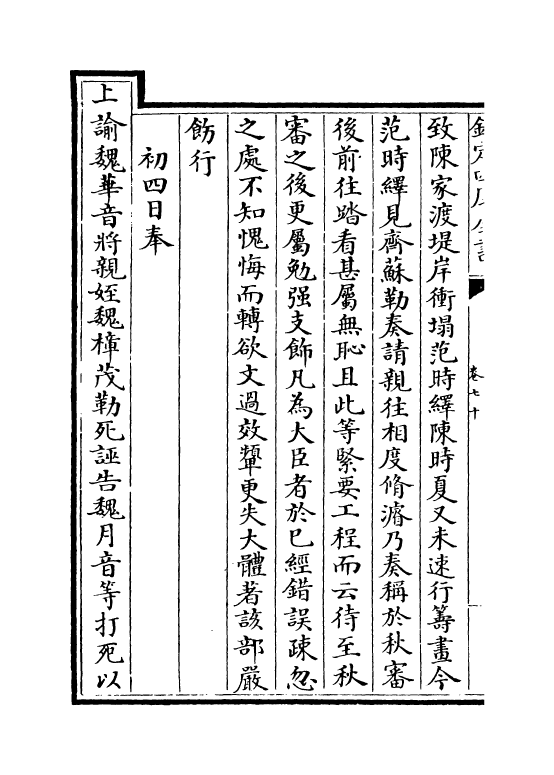 卷七十
致陳家渡堤岸衝塌范時繹陳時夏又未速行籌畫今
范時繹見齊蘇勒奏請親往相度脩濬乃奏稱於秋審
後前往踏看甚屬無恥且此等緊要工程而云待至秋
審之後更屬勉强支飾凡為大臣者於已經錯誤疎忽
之處不知愧悔而轉欲文過效顰更失大體著該部嚴
飭行
初四日奉
上諭魏華音將親姪魏樟茂勒死誣告魏月音等打死以